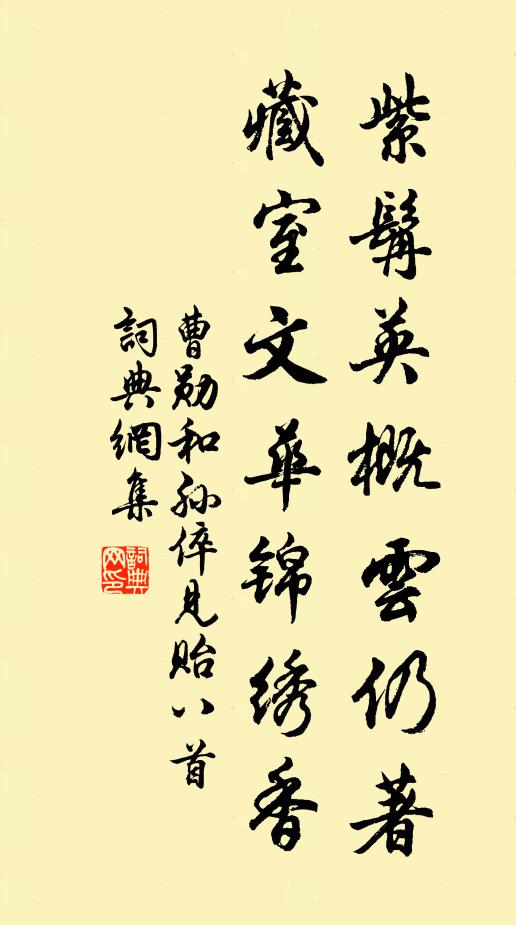 紫髯英概雲仍著
藏室文華錦绣香
曹勋和孙倅見貽八首
詞典網集
詞典網印